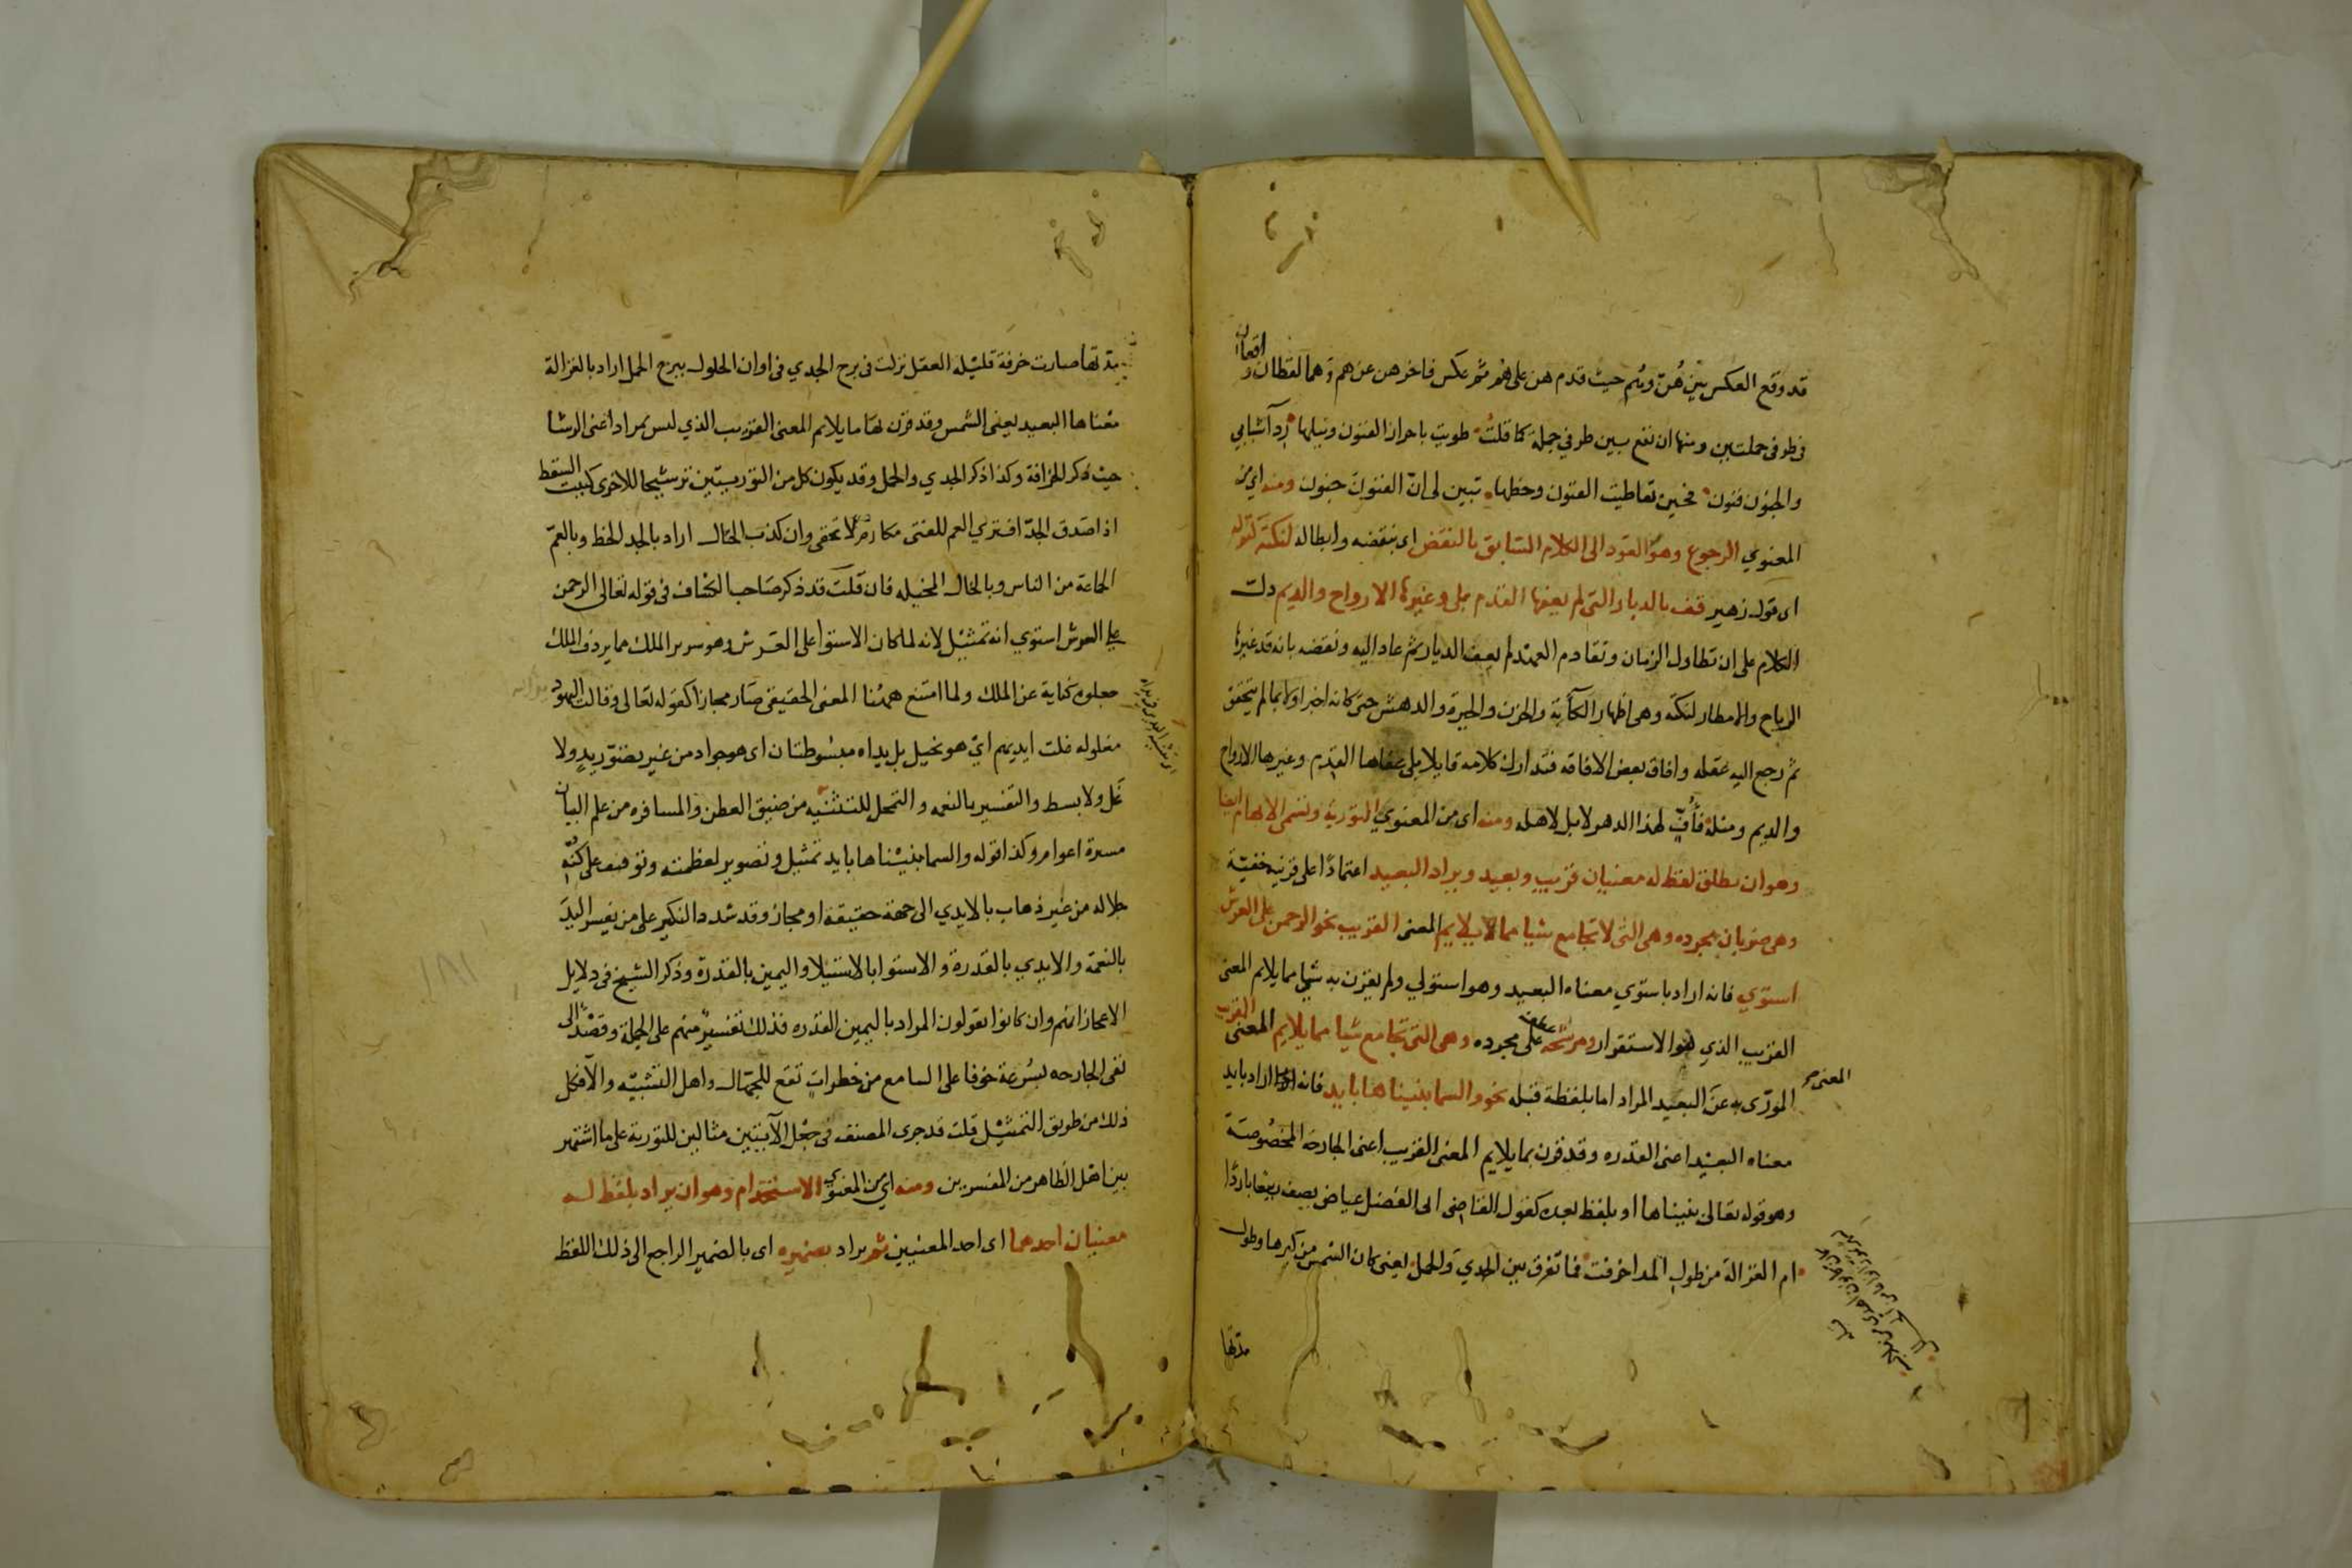 قد وقع العكس بين هُنّ وهُم حيث قدم هن على هُم ثم عكس فاخر هن عن هم وهما لفظان واقعان
فى طرفى جملتين ومنها ان تقع بين طرفي جملة كما قلتُ طويت باحراز الفنون ونيلها رِدآ شبابي
والجنون فنون فحين تعاطيت الفنون وحظها تبين لى انّ الفنون جنون ومنه اى من
المعنوي الرجوع وهو العَود الى الكلام السّابق بالنقض اى بنقضه وابطاله لنكتة كقوله
اى قول زهير قف بالديار التى لم يعفها القدم بلى وغيرها الارواح والديم دلت
الكلام على ان تطاول الزمان وتقادم العهد لم يعف الديار ثم عاد اليه ونقضه بانه قد غيرها
الرياح والامطار لنكته وهى اظهار الكآبة والحزن والحيرة والدهش حتى كانه اخبر اولا بما لم يتحقق
ثم رجع اليه عقله وافاق بعض الافاقه فتدارك كلامه قايلا بلى عفاها القدم وغيرها الارواح
والديم ومثله فأُفٍّ لهذا الدهر لا بل لاهله ومنه اى من المعنوي التورية وتسمى الايهام ايضا
وهو ان يطلق لفظ له معنيان قريب وبعيد ويراد البعيد اعتمادًا على قرينة خفيّة
وهى ضربان مجرده وهى التى لا تجامع شيا مما يلايم المعنى القريب نحو الرحمن على العرش
استوي فانه اراد باستوي معناه البعيد وهو استولي ولم يقرن به شي مما يلايم المعنى
القريب الذي هو الاستقرار ومرشحه عطف على مجرده وهى التى تجامع شيا مما يلايم المعنى القريب
المورّى به عن المعنى البعيد المراد اما بلفظة قبله نحو والسما بنيناها بايد فانه اراد بايد
معناه البعيد اعنى القدره وقد قرن بما يلايم المعنى القريب اعنى الجارحة المخصُوصة
وهو قوله تعالى بنيناها او بلفظ بعده كقول القاضى ابى الفضل عياض يصف ربيعا باردًا
ام الغزالة من طول المدا خرفت فما تفرق بين الجدي والحمل يعنى كان الشمس من كبرها وطول
مدتها
مدتها صارت خرفة قليله العقل نزلت فى برج الجدي فى اوان الحلول ببرج الحمل اراد بالغزالة
معْناها البعيد يعنى الشمس وقد قرن لها ما يلايم المعنى القريب الذي ليس بمراد اعنى الرشا
حيث ذكر الخرافة وكذا ذكر الجدي والحمل وقد يكون كل من التوريتين ترشيحا للاخرى كبيت السقط
اذا صَدق الجدّ افتري العم للفتى مكارم لا تخفى وان كذب الخال اراد بالجد الحظ وبالعمّ
الجماعة من الناس وبالخال المخيله فان قلت قد ذكر صَاحب الكشاف فى قوله تعالى الرحمن
على العرش استوي انه تمثيل لانه لما كان الاستوا على العَرش وهو سرير الملك مما يردف الملك
جعلوه كناية عن الملك ولما امتنع ههنا المعنى الحقيقى صَار مجازا كقوله تعالى وقالت اليهود يد الله
مغلوله غلت ايديهم اىّ هو بخيل بل يداه مبسُوطتان اى هو جواد من غير تصوّر يدٍ ولا
غَل ولا بسط والتفسير بالنعمه والتمحل للتثنيه من ضيق العطن والمسافره من علم البيان
مسيرة اعوام وكذا قوله والسما بنيْناها بايد تمثيل وتصوير لعظمته وتوقيف على كنه
جلاله من غير ذهاب بالايدي الى جهة حقيقة او مجاز وقد شدد النكير على من يفسر اليدَ
بالنعمة والايدي بالقدرة والاستوا بالاستيلا واليمين بالقدرة وذكر الشيخ فى دلايل
الاعجاز انهم وان كانوا يقولون المراد باليمين القدره فذلك تفسيرٌ منهم على الجملة وقصْد الى
نفى الجارحه بسُرعة خوفا على السامع من خطراتٍ تقع للجهّال واهل التشبيّه والّا فكل
ذلك من طريق التمثيل قلت قد جرى المصنف فى جعْل الآيتين مثالين للتورية على ما اشتهر
بين اهل الظاهر من المفسرين ومنه اى من المعنوي الاستخدام وهو ان يراد بلفظ له
معنيان احدهما اى احد المعنيين ثم يراد بضميره اى بالضمير الراجع الى ذلك اللفظ